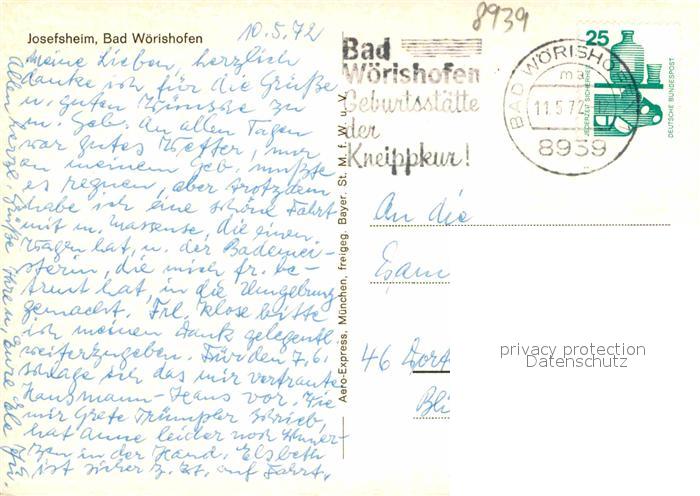 8939
Josefsheim, Bad Wörishofen
10.5.72
Meine Lieben, herzlich
danke ich für die Grüße
u. guten Wünsche zu
m. Geb. An allen Tagen
war gutes Wetter, nur
an meinem Geb. mußte
es regnen, aber trotzdem
habe ich eine schöne Fahrt
mit m. Masseuse, die einen
Wagen hat, u. der Bademei-
sterin, die mich fr. be-
treut hat, in die Umgebung
gemacht. Frl. Klose bitte
ich meinen Dank gelegentl.
weiterzugeben. Für den 7.6.
schlage ich das mir vertraute
Hausmann-Haus vor. Wie
mir Grete Trümpler schrieb,
hat Anne leider noch Schmer-
zen in der Hand. Elsbeth
ist sicher z. Zt. auf Fahrt.
Allen herzl. Grüße Ihre u. Eure
Aero-Express, München, freigeg. Bayer. St. M. f. W. u. V.
Bad
Wörishofen
Geburtsstätte
der
Kneippkur!
BAD WÖRISHOF
11.5.72
8939
25
JEDERZEIT SICHERHEIT
DEUTSCHE BUNDESPOST
An die
46 Dort
privacy protection
Datenschutz